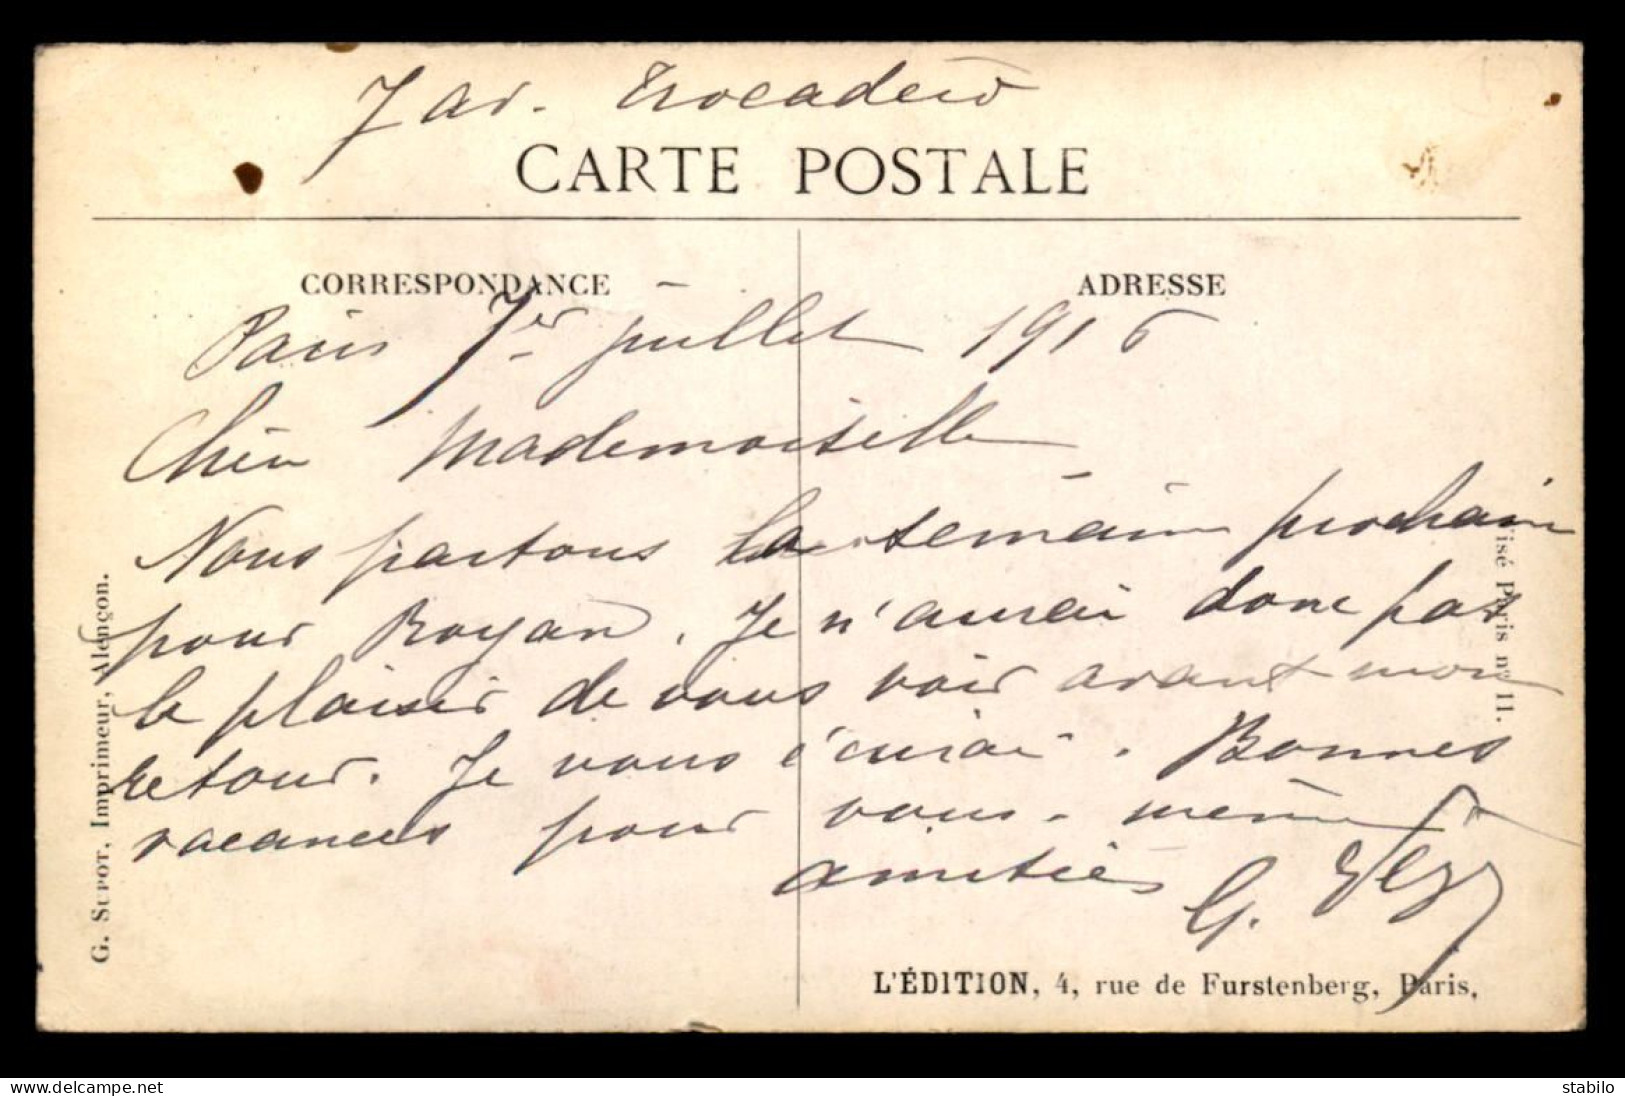 7 av. Trocadero
CARTE POSTALE
CORRESPONDANCE
ADRESSE
Paris 1er juillet 1916
Chère Mademoiselle
Nous partons la semaine prochaine
pour Royan. Je n'aurai donc pas
le plaisir de vous voir avant mon
retour. Je vous écrirai. Bonnes
vacances pour vous-même
amitiés G.
L'ÉDITION, 4, rue de Furstenberg, Paris.
G. SUPOT, Imprimeur, Alençon.
Visé Paris no 11.
www.delcampe.net
stabilo